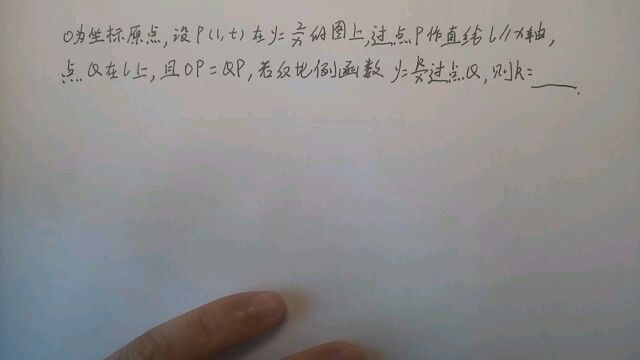 O为坐标原点,设P(1,t)在y=2/x的图上,过点P作直线l//x轴,
点Q在l上,且OP=QP,若反比例函数y=k/x过点Q,则k=____.